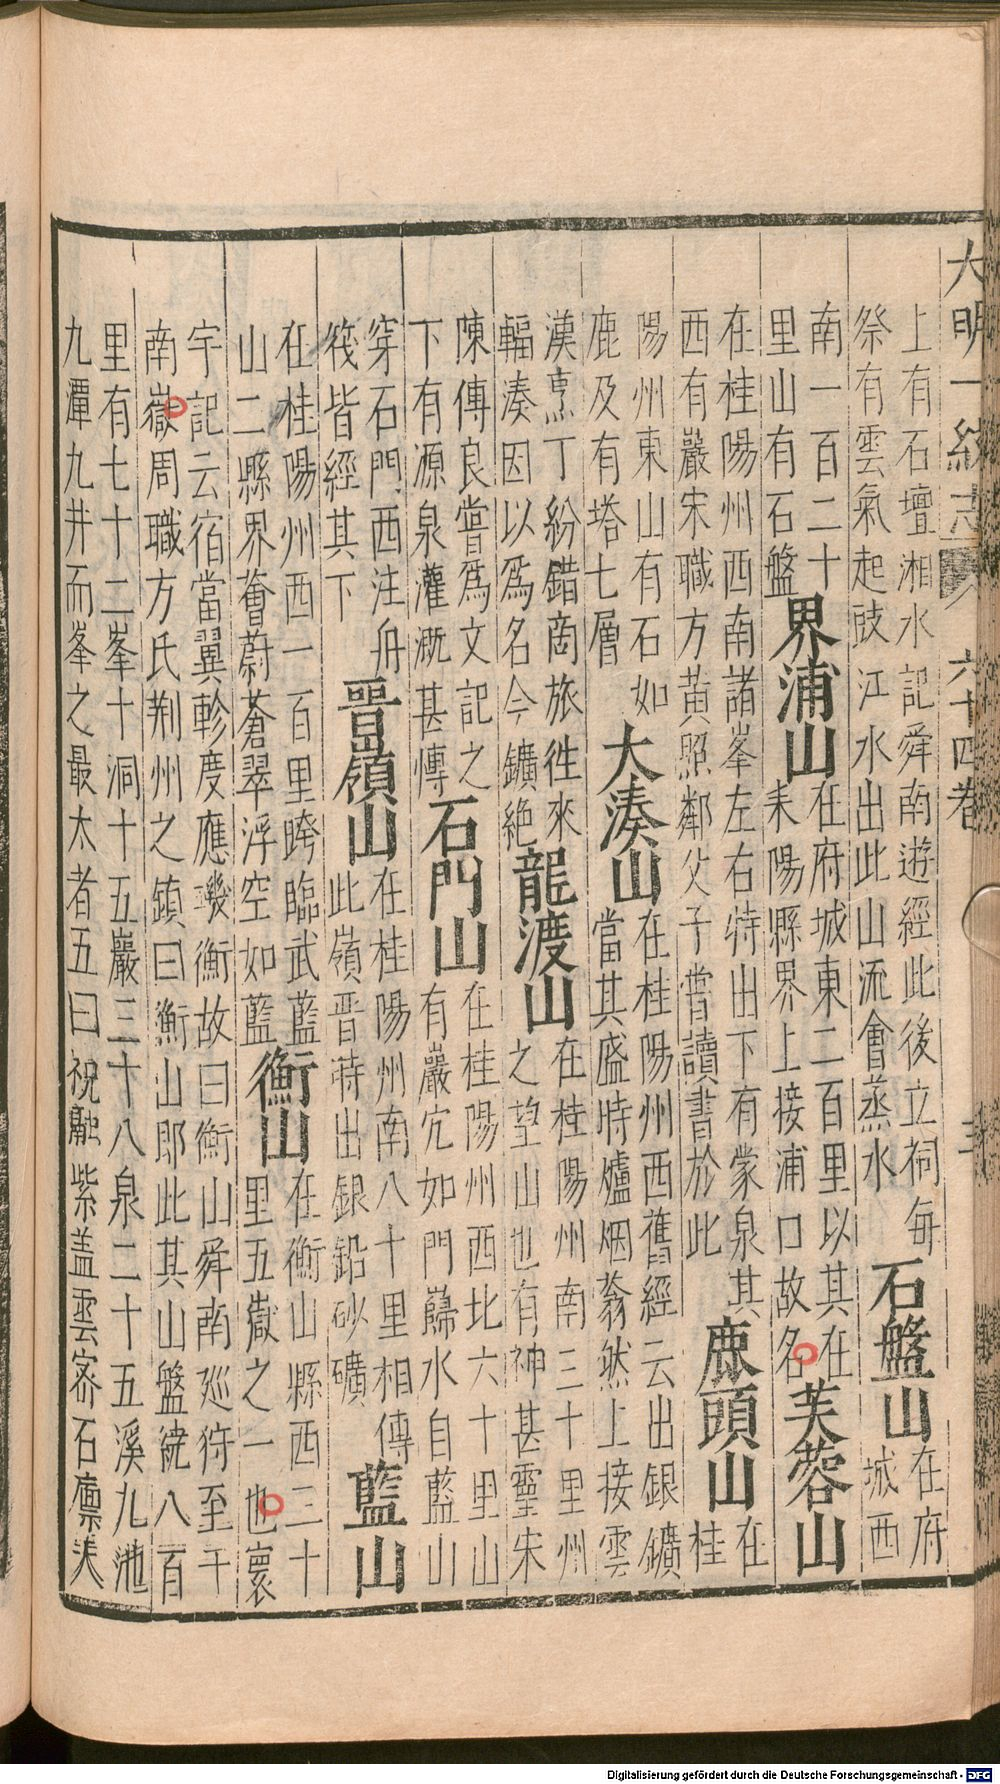 大明一統志 六十四卷 三
上有石壇湘水記舜南遊經此後立祠每
祭有雲氣起豉江水出此山流會蒸水
石盤山
在府
城西
南一百二十
里山有石盤
界浦山
在府城東二百里以其在
耒陽縣界上接浦口故名
芙蓉山
在桂陽州西南諸峯左右特出下有蒙泉其
西有巖宋職方黃照鄰父子嘗讀書於此
鹿頭山
在
桂
陽州東山有石如
鹿及有塔七層
大湊山
在桂陽州西舊經云出銀鑛
當其盛時爐烟蓊然上接雲
漢烹丁紛錯商旅徃來
輻湊因以爲名今鑛絶
龍渡山
在桂陽州南三十里州
之望山也有神甚靈宋
陳傳良嘗爲文記之
下有源泉灌溉甚愽
石門山
在桂陽州西北六十里山
有巖宂如門巋水自藍山
穿石門西注舟
筏皆經其下
晋嶺山
在桂陽州南八十里相傳
此嶺晋時出銀鉛砂礦
藍山
在桂陽州西一百里跨臨武藍
山二縣界薈蔚蒼翠浮空如藍
衡山
在衡山縣西三十
里五嶽之一也寰
宇記云宿當翼軫度應璣衡故曰衡山舜南廵狩至于
南嶽周職方氏荆州之鎮曰衡山即此其山盤繞八百
里有七十二峯十洞十五巖三十八泉二十五溪九池
九潭九井而峯之最大者五曰祝融紫盖雲密石廪天
Digitalisierung gefördert durch die Deutsche Forschungsgemeinschaft - DFG